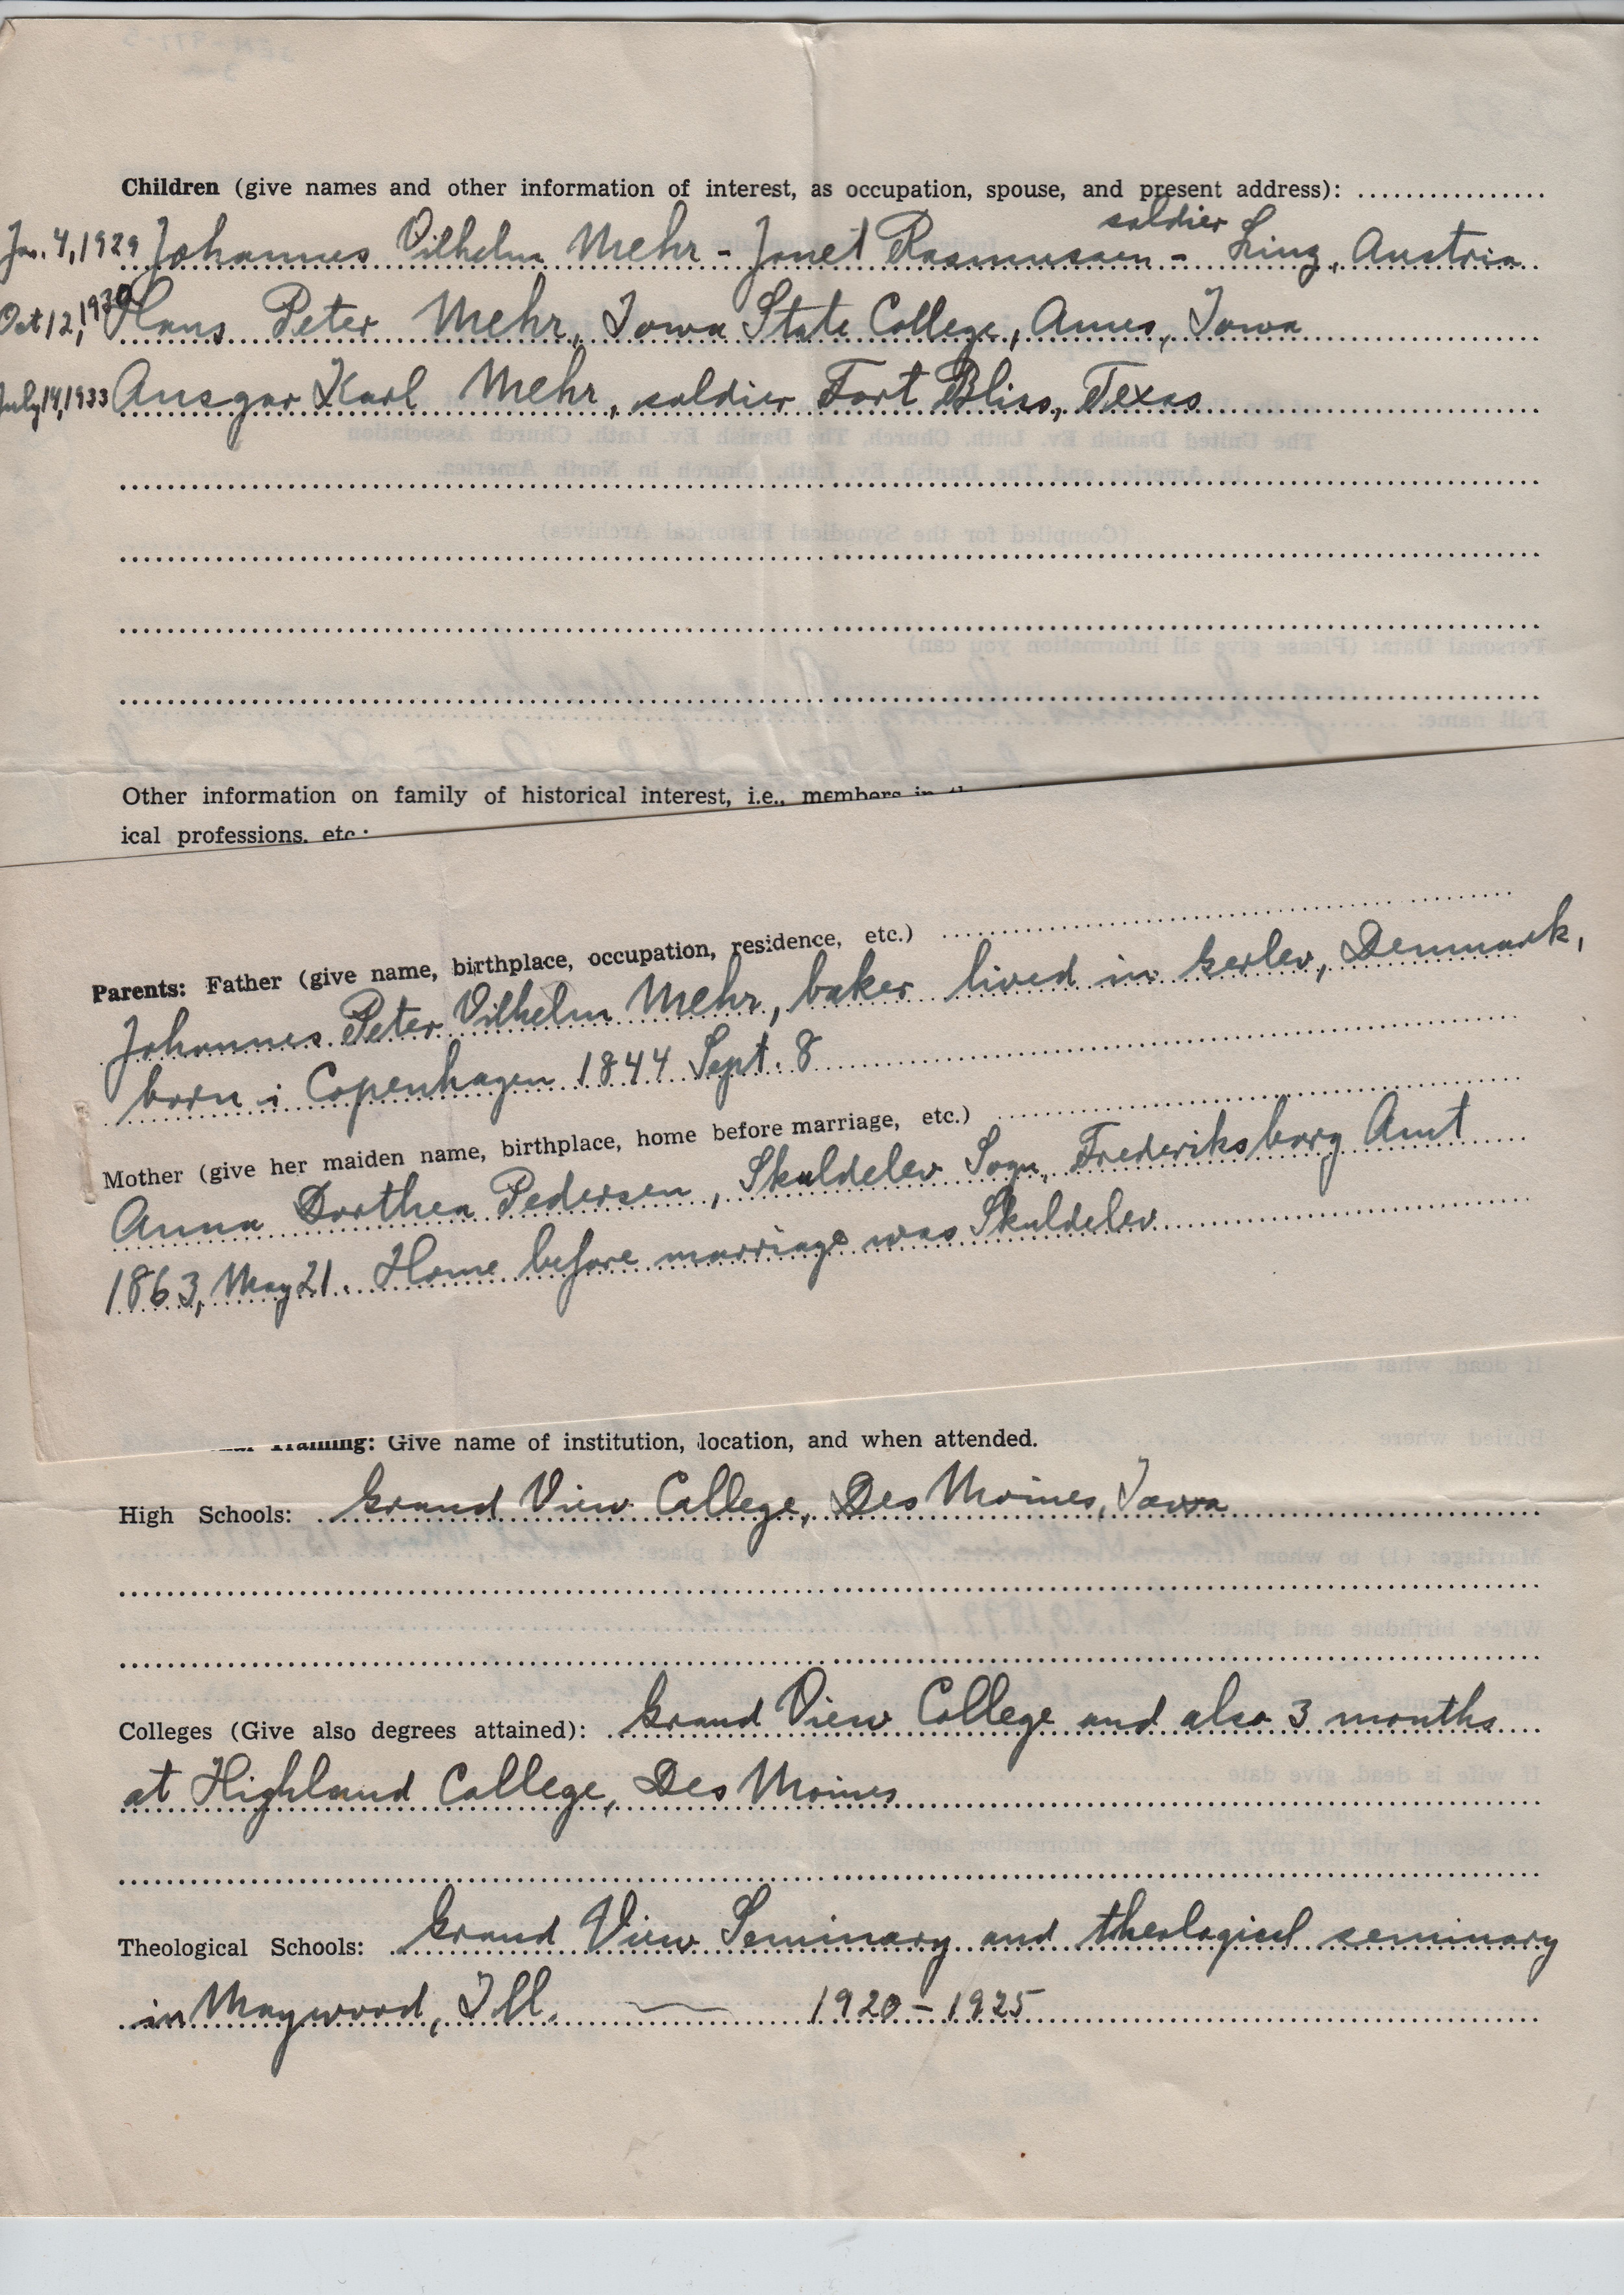 Children (give names and other information of interest, as occupation, spouse, and present address):
soldier
Jan. 4, 1929 Johannes Vilhelm Mehr - Janet Rasmussen - Linz, Austria
Oct 12, 1930 Hans Peter Mehr, Iowa State College, Ames, Iowa
July 14, 1933 Ansgar Karl Mehr, soldier Fort Bliss, Texas
Other information on family of historical interest, i.e., members in
ical professions, etc.:
Parents: Father (give name, birthplace, occupation, residence, etc.)
Johannes Peter Vilhelm Mehr, baker lived in Gerlev, Denmark,
born i Copenhagen 1844 Sept. 8
Mother (give her maiden name, birthplace, home before marriage, etc.)
Anna Dorthea Pedersen, Skuldelev Sogn, Frederiksborg Amt
1863, May 21. Home before marriage was Skuldelev
Training: Give name of institution, location, and when attended.
High Schools: Grand View College, Des Moines, Iowa
Colleges (Give also degrees attained): Grand View College and also 3 months
at Highland College, Des Moines
Theological Schools: Grand View Seminary and theological seminary
in Maywood, Ill. — 1920 - 1925